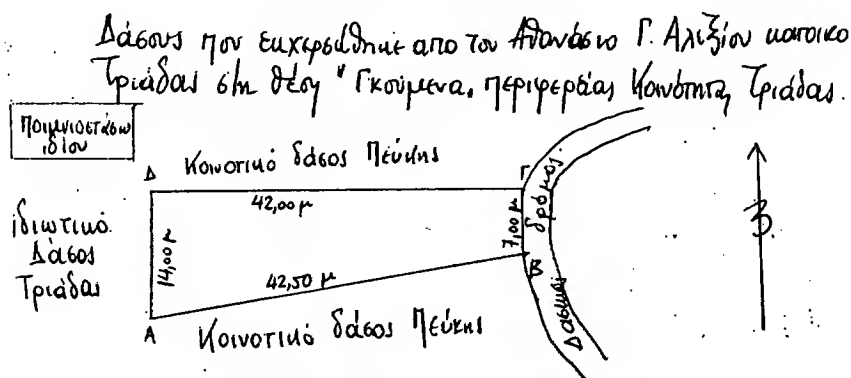 Δάσους που εκχερσώθηκε απο τον Αθανάσιο Γ. Αλεξίου κατοικο
Τριάδας στη θέση "Γκούμενα, περιφερείας Κοινότητας Τριάδας.
Ποιμνιοστάσιο
ιδίου
Δ Κοινοτικό δάσος Πεύκης Γ
42,00 μ
ιδιωτικό
Δάσος
Τριάδας
14,00 μ
7,00 μ
δρόμος
Β
42,50 μ
Α Κοινοτικό δάσος Πεύκης
Δασικός